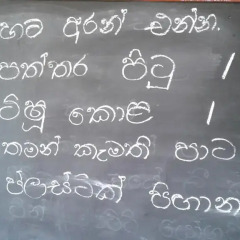 හට අරන් එන්න.
පත්තර පිටු 1
ටිෂූ කොළ 1
තමන් කැමති පාට
ප්ලාස්ටික් පිඟාන